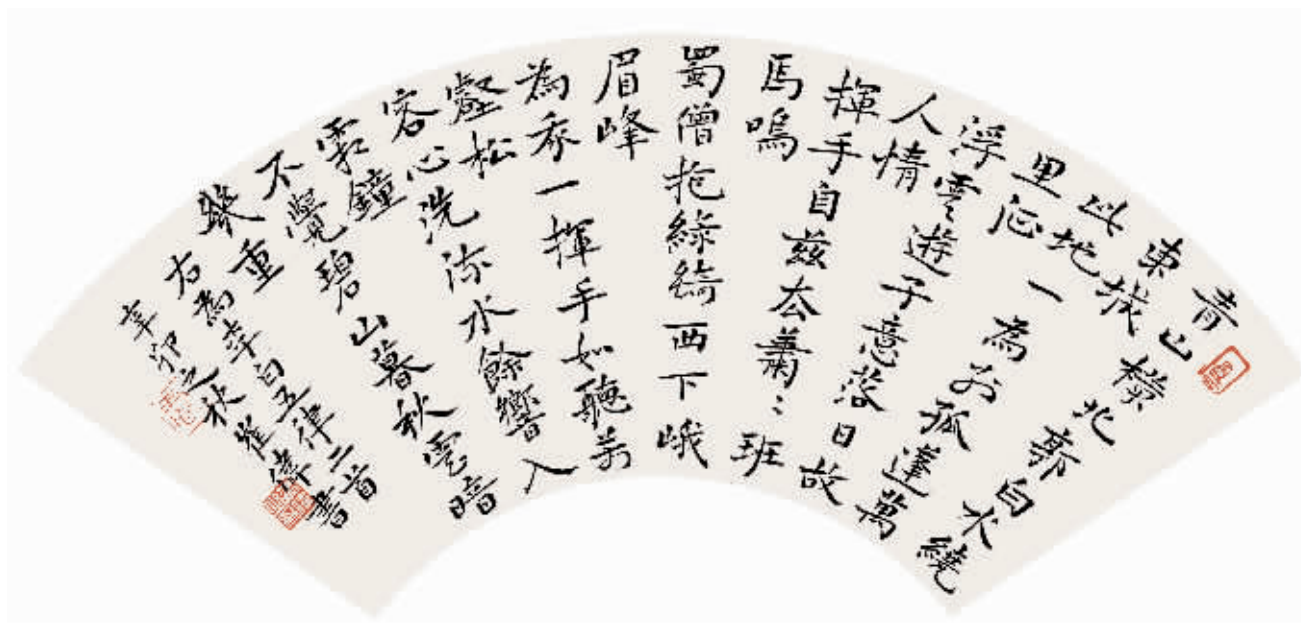 青山橫北郭白水繞
東城
此地一為別孤蓬萬
里征
浮雲遊子意落日故
人情
揮手自茲去蕭〻班
馬鳴
蜀僧抱綠綺西下峨
眉峰
為我一揮手如聽萬
壑松
客心洗流水餘響入
霜鐘
不覺碧山暮秋雲暗
幾重
右為李白五律二首
辛卯之秋崔偉書